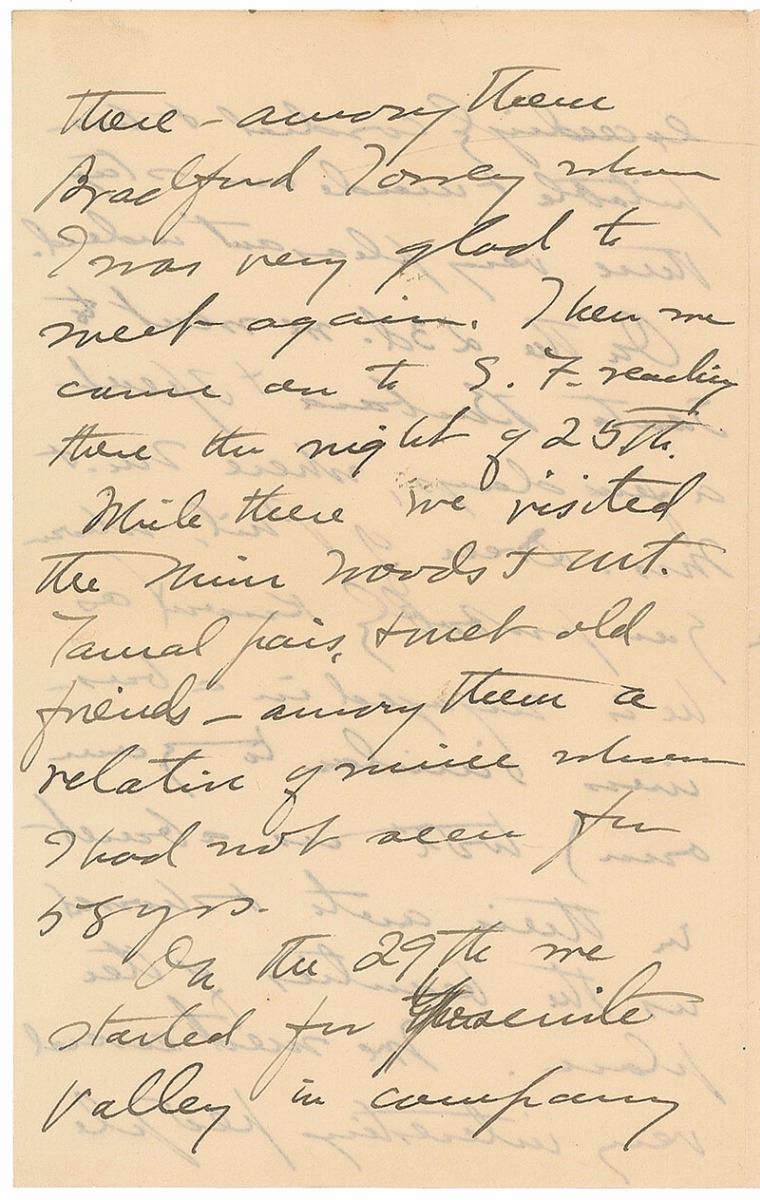 there – among them
Bradford Torrey whom
I was very glad to
meet again. Then we
came on to S. F. reaching
there the night of 25th.
While there we visited
the Muir Woods & Mt.
Tamalpais, & met old
friends – among them a
relative of mine whom
I had not seen for
58 yrs.
On the 29th we
started for Yosemite
Valley in company